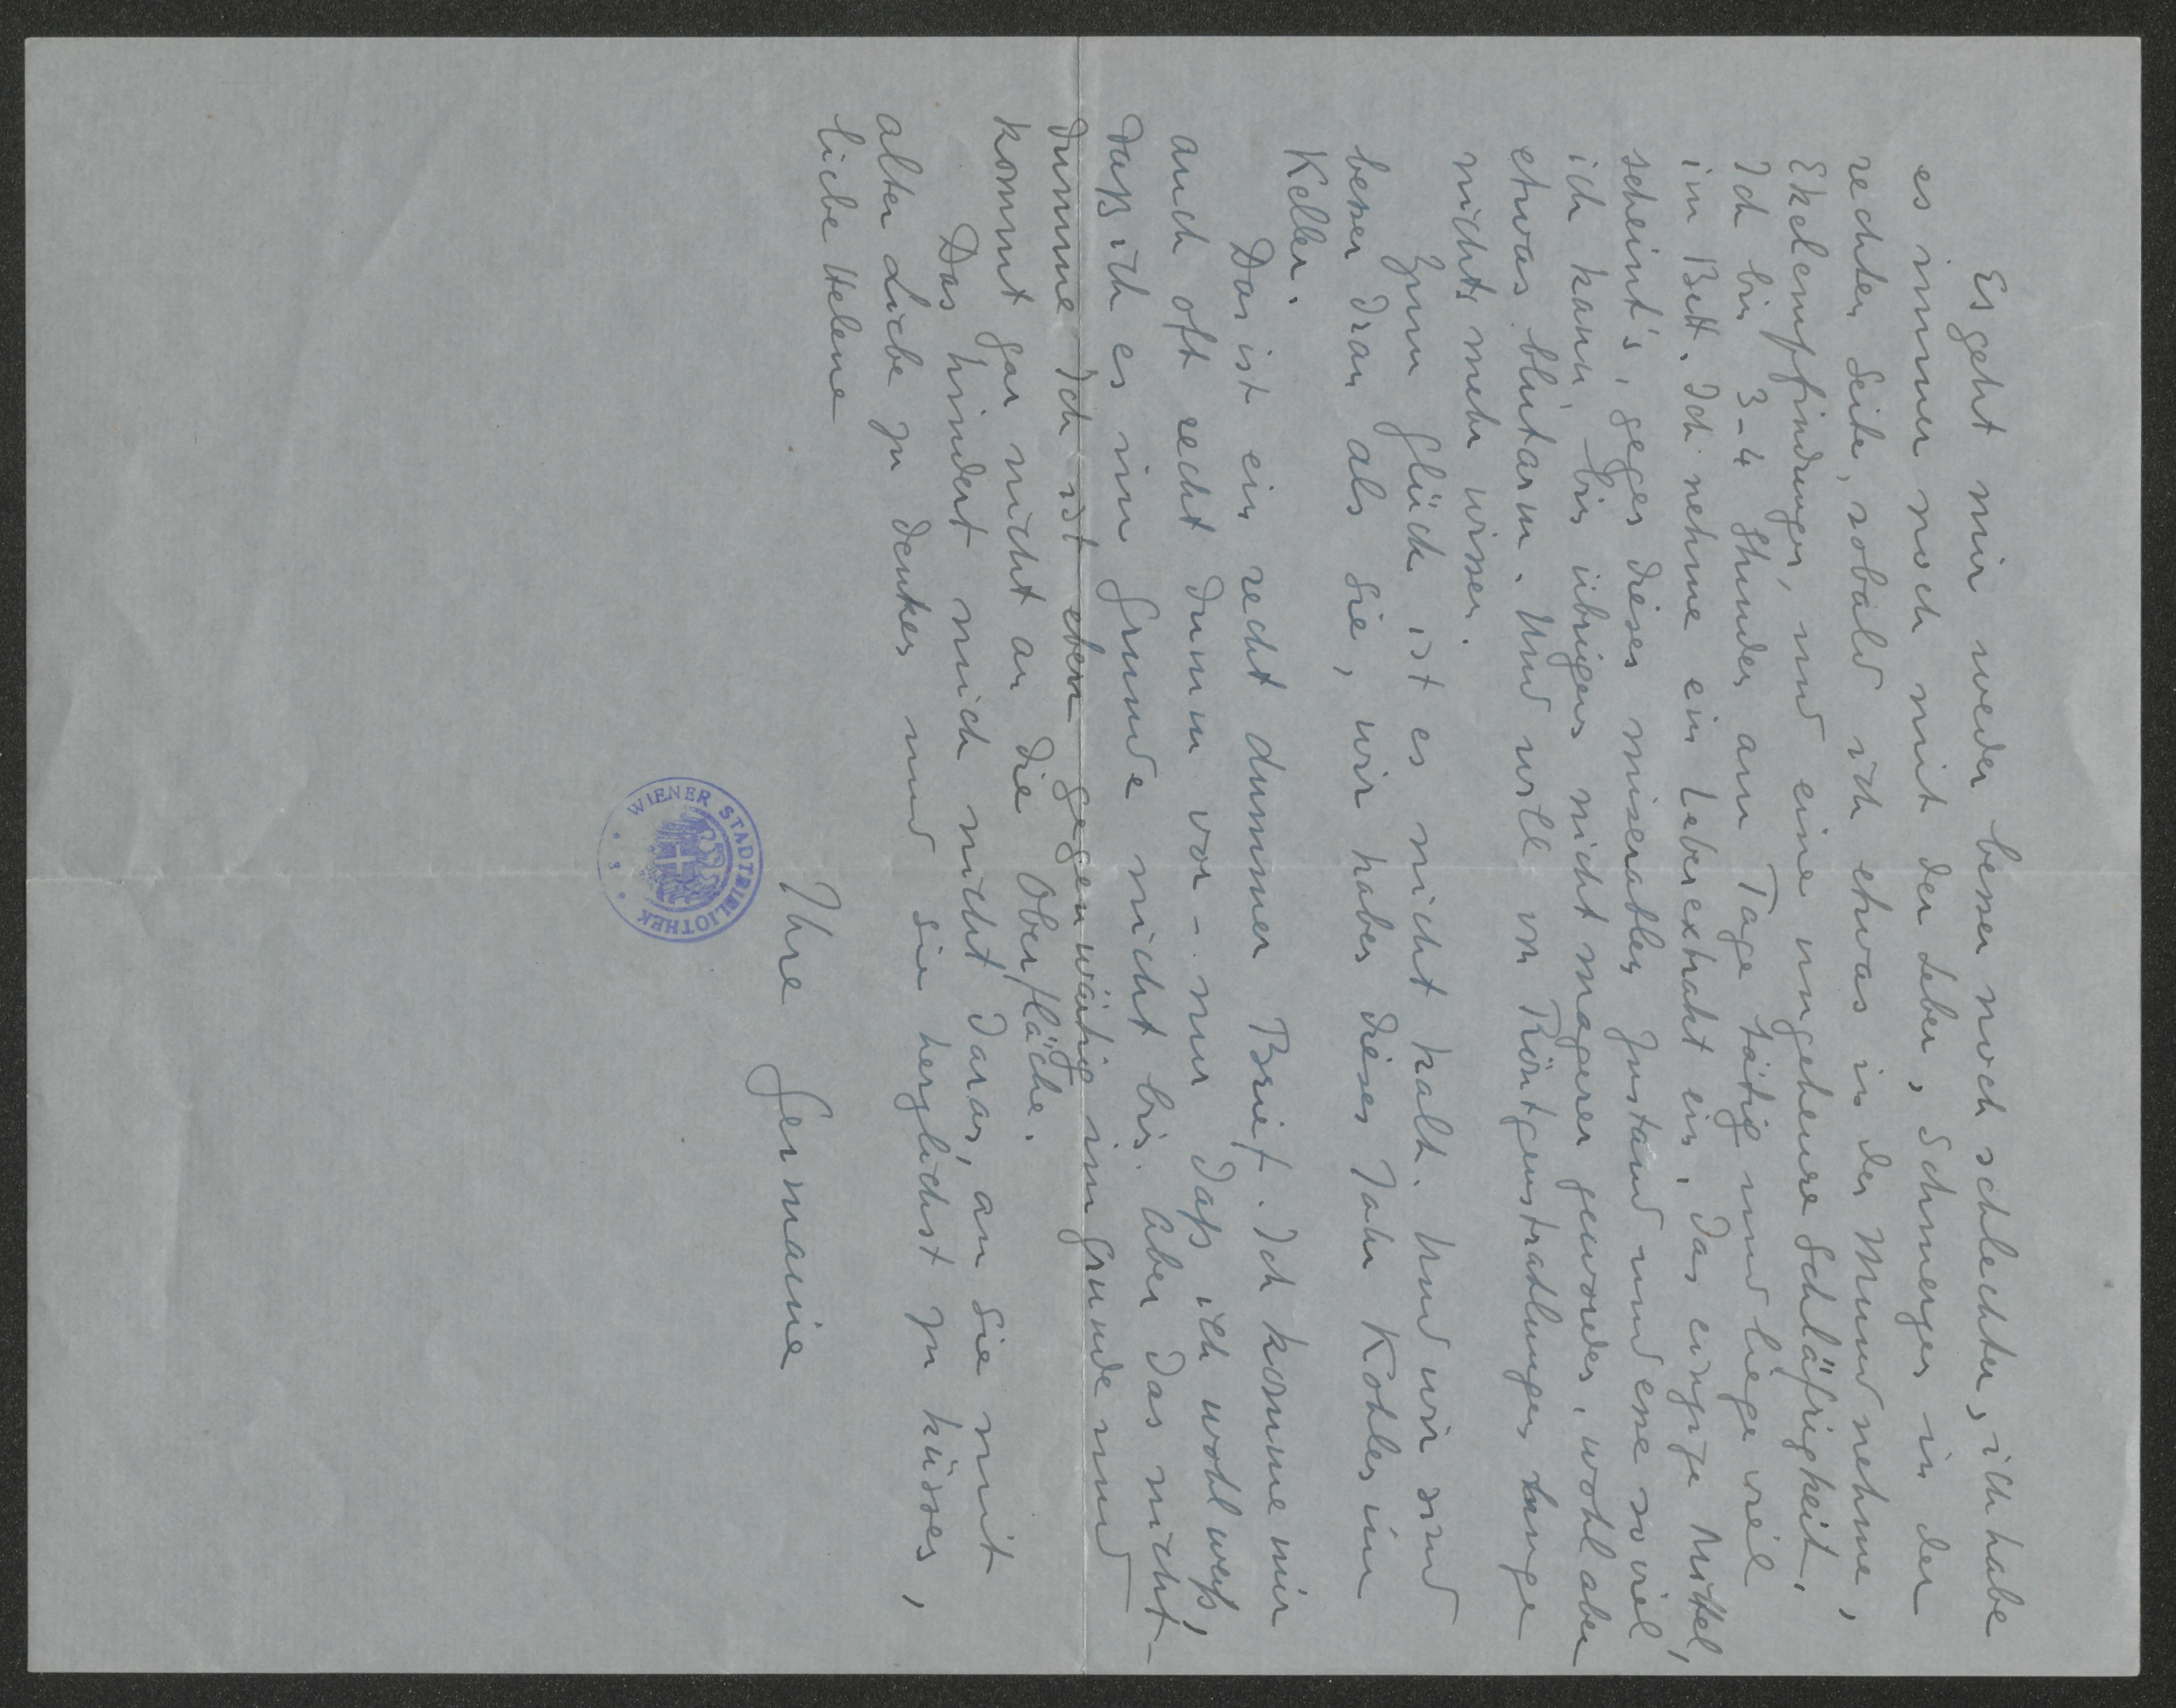 Es geht mir weder besser noch schlechter, ich habe
es immer noch mit der Leber, Schmerzen in der
rechten Seite, sobald ich etwas in den Mund nehme,
Ekelempfindungen, und eine ungeheure Schläfrigkeit.
Ich bin 3-4 Stunden am Tage tätig und liege viel
im Bett. Ich nehme ein Leberextrakt ein, das einzige Mittel,
scheint's, gegen diesen miserablen Zustand und esse so viel
ich kann, bin übrigens nicht magerer geworden, wohl aber
etwas blutarm. Und will von Röntgenstrahlungen lange
nichts mehr wissen.
Zum Glück ist es nicht kalt. Und wir sind
besser dran als Sie, wir haben dieses Jahr Kohlen im
Keller.
Das ist ein recht dummer Brief. Ich komme mir
auch oft recht dumm vor - nur daß ich wohl weiß,
daß ich es im Grunde nicht bin. Aber das nicht-
dumme Ich ist eben gegenwärtig im Grunde und
kommt gar nicht an die Oberfläche.
Das hindert mich nicht daran, an Sie mit
alter Liebe zu denken und Sie herzlichst zu küssen,
liebe Helene
Ihre Germaine
WIENER STADTBIBLIOTHEK
3